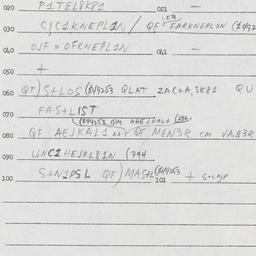 020 P1TEL8K81 021 —
EQ
030 C,C1KNEPL1N / QF FARKNEPL1N ($492
040 OJF = OFKNEPL1N 041 —
050 +
060 QF) S+LOS ($49253 QLAT ZAC+A,3K81 QU
070 FAS+LIST
080 QF AEJKAL1 QF MEN3R CM VA.83R
090 UNC2HEJKL81N (794
100 S+N1PSL QF) MAS+L ($49253 101 + S+LMJP